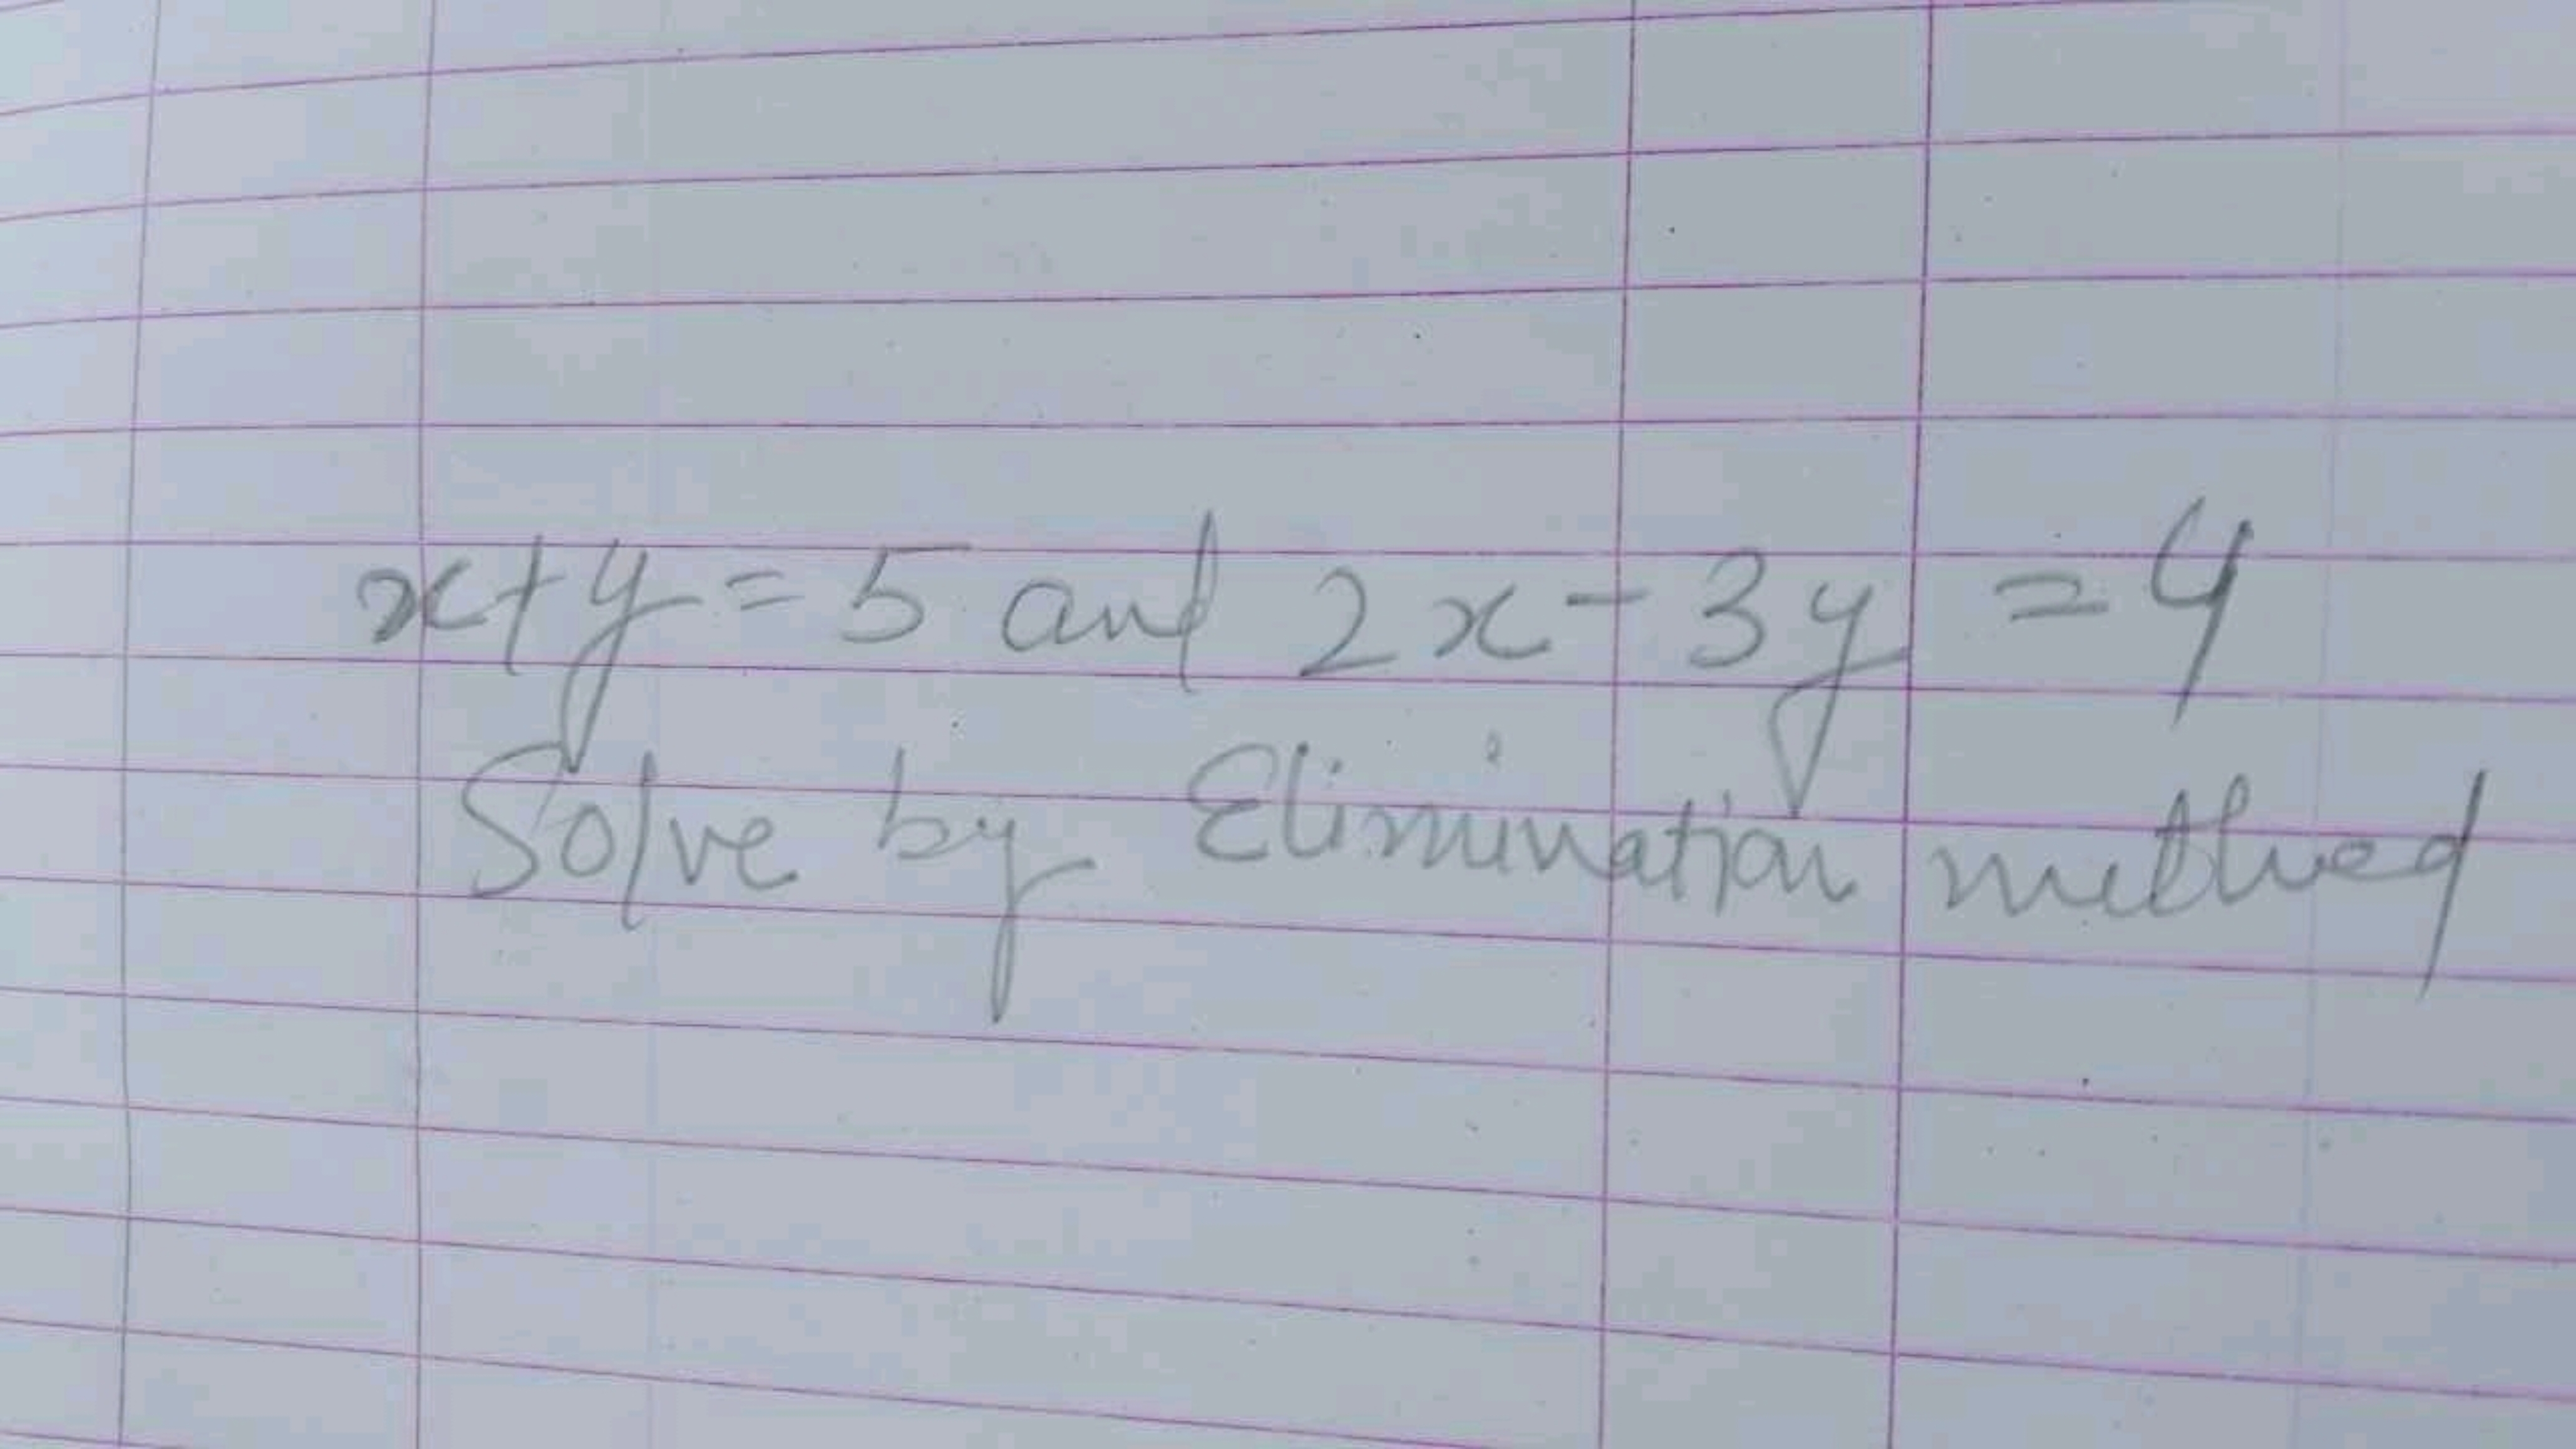 x+y = 5 and 2x - 3y = 4
Solve by Elimination method